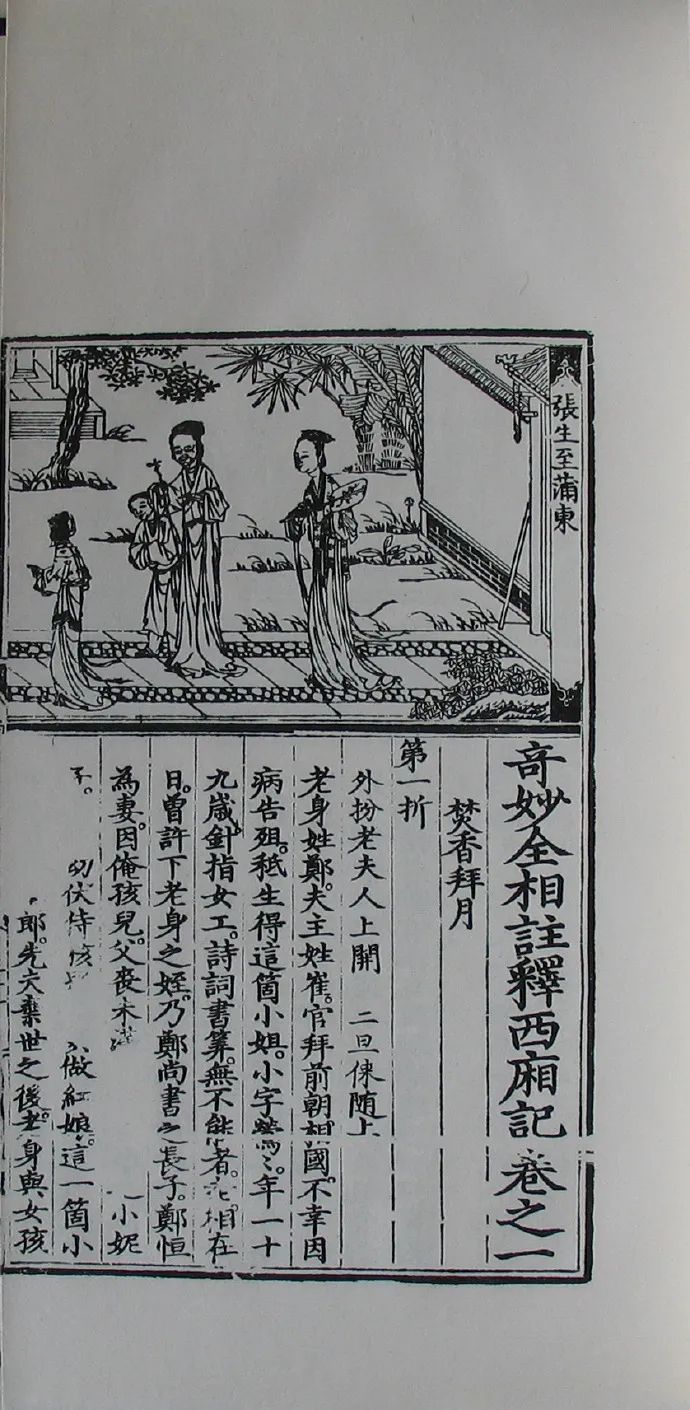 張生至蒲東
奇妙全相註釋西廂記 卷之一
焚香拜月
第一折
外扮老夫人上開 二旦倈随上
老身姓鄭。夫主姓崔。官拜前朝相國。不幸因
病告殂。秪生得這箇小姐。小字鶯〻。年一十
九歲。針指女工。詩詞書算。無不能者。相在
日。曾許下老身之姪。乃鄭尚書之長子。鄭恒
為妻。因俺孩兒。父喪未 一小妮
子。 幼伏侍孩 做紅娘。這一箇小
郎。先丈棄世之後。老身與女孩